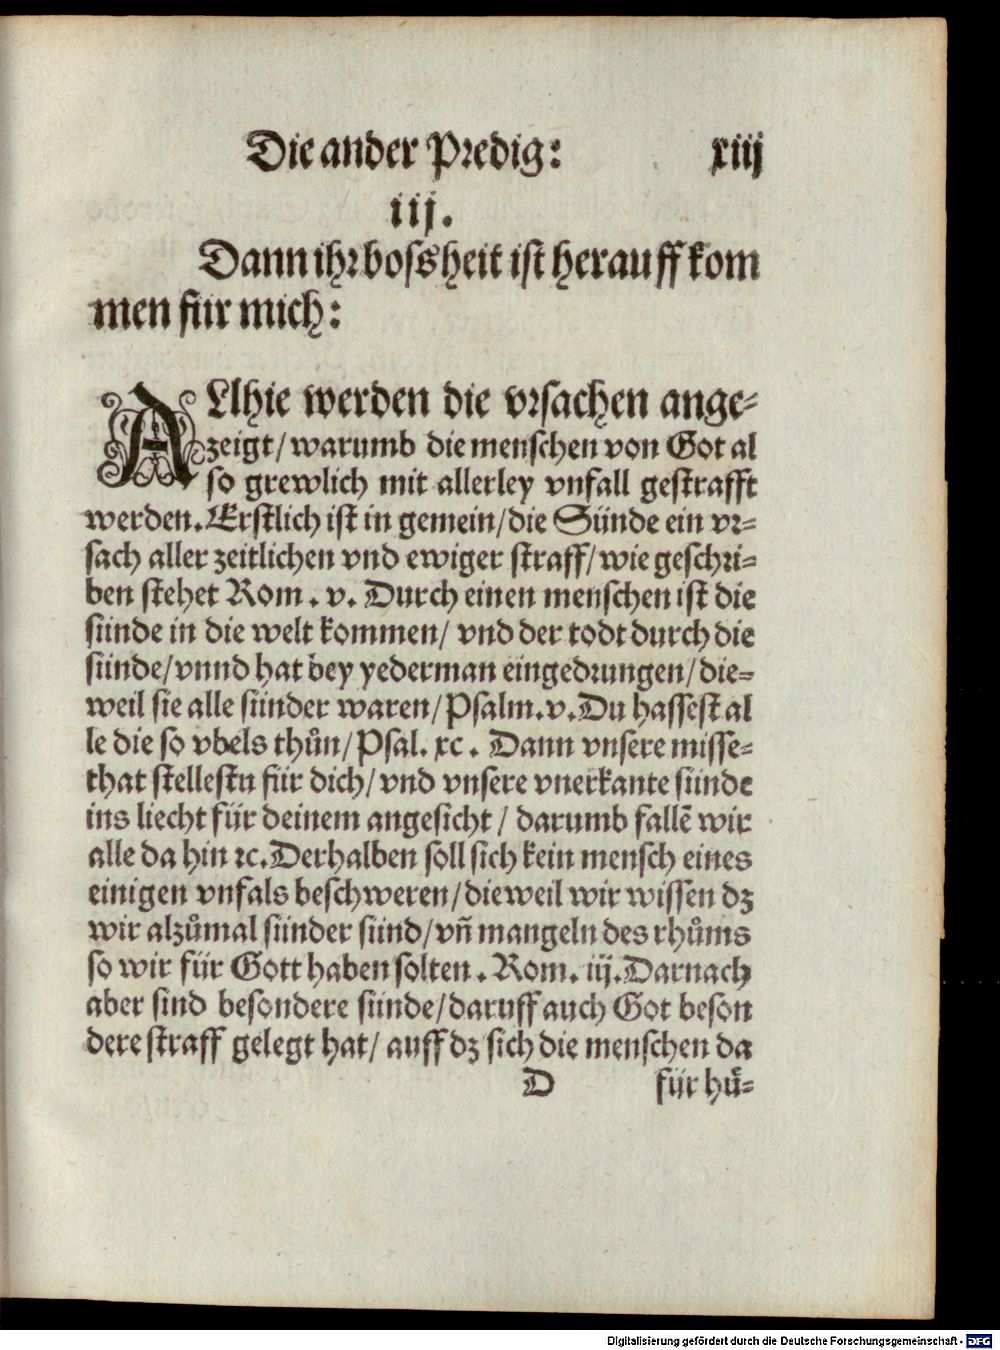 Die ander Predig: xiij
iij.
Dann ihr bossheit ist herauff kom
men für mich:
ALlhie werden die vrsachen ange⸗
zeigt/ warumb die menschen von Got al
so grewlich mit allerley vnfall gestrafft
werden. Erstlich ist in gemein/ die Sünde ein vr⸗
sach aller zeitlichen vnd ewiger straff/ wie geschri⸗
ben stehet Rom. v. Durch einen menschen ist die
sünde in die welt kommen/ vnd der todt durch die
sünde/ vnnd hat bey yederman eingedrungen/ die⸗
weil sie alle sünder waren/ Psalm. v. Du hassest al
le die so vbels thůn/ Psal. xc. Dann vnsere misse⸗
that stellestu für dich/ vnd vnsere vnerkante sünde
ins liecht für deinem angesicht/ darumb fallē wir
alle da hin ꝛc. Derhalben soll sich kein mensch eines
einigen vnfals beschweren/ dieweil wir wissen dz
wir alzůmal sünder sünd/ vñ mangeln des rhůms
so wir für Gott haben solten. Rom. iij. Darnach
aber sind besondere sünde/ daruff auch Got beson
dere straff gelegt hat/ auff dz sich die menschen da
D für hů⸗
Digitalisierung gefördert durch die Deutsche Forschungsgemeinschaft - DFG